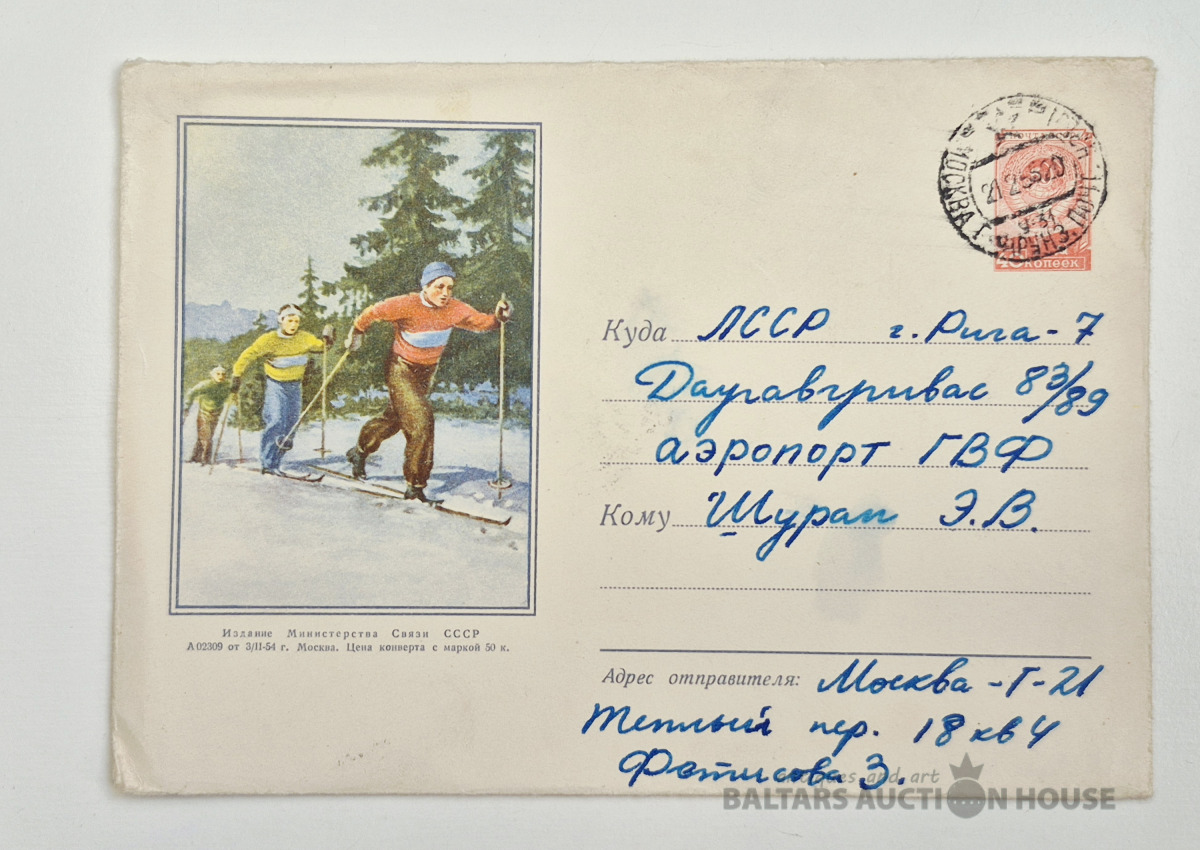 Издание Министерства Связи СССР
А 02309 от 3/II-54 г. Москва. Цена конверта с маркой 50 к.
МОСКВА Г
40 КОПЕЕК
Куда ЛССР г. Рига-7
Даугавгривас 83/89
аэропорт ГВФ
Кому Шурап Э.В.
Адрес отправителя: Москва-Г-21
Теплый пер. 18 кв 4
Фетисова З.
antiques and art
BALTARS AUCTION HOUSE